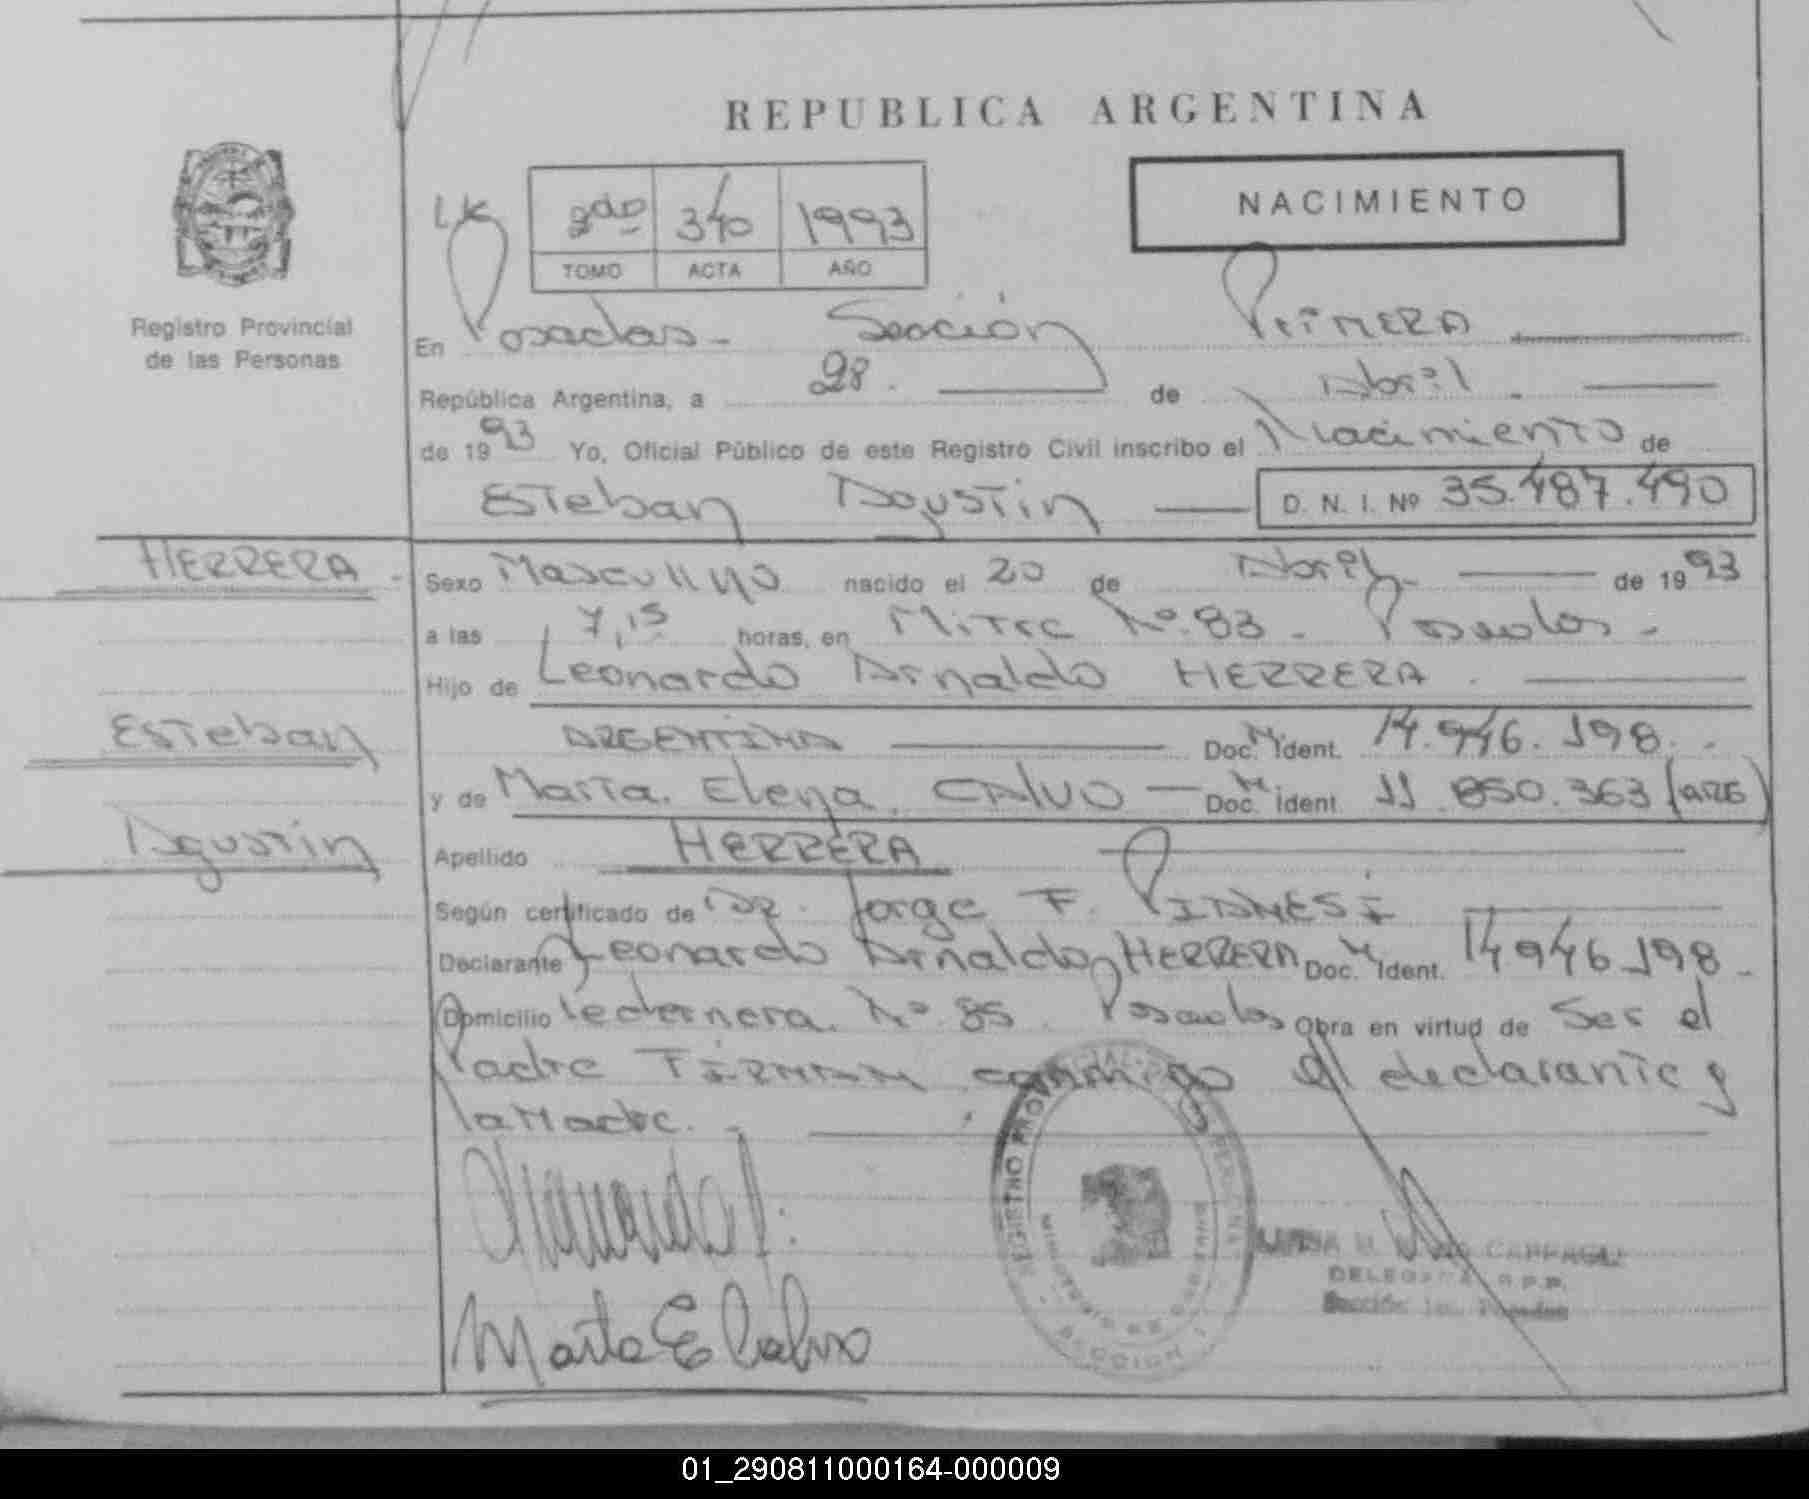 REPUBLICA ARGENTINA
NACIMIENTO
LK
2do 340 1993
TOMO ACTA AÑO
Registro Provincial
de las Personas
En Posadas - Sección Primera
República Argentina, a 28. de Abril.
de 1993 Yo, Oficial Público de este Registro Civil inscribo el Nacimiento de
Esteban Agustin D. N. I. Nº 35.487.490
HERRERA -
Sexo Masculino nacido el 20 de Abril de 1993
a las 7,15 horas, en Mitre Nº 83 - Posadas -
Hijo de Leonardo Arnaldo HERRERA.
Esteban
ARGENTINA Doc. Ident. 14.946.198.
y de Marta. Elena. CALVO - Doc. Ident. 11.850.363 (ARG)
Agustin
Apellido HERRERA
Según certificado de Dr. Jorge F.
Declarante Leonardo Arnaldo HERRERA Doc. Ident. 14946198 -
Domicilio Nº 85. Posadas Obra en virtud de Ser el
Padre FIRMAN conmigo el declarante y
la Madre. -
REGISTRO PROVINCIAL
SECCION 1
Marta E Calvo
DELEGADA R.P.P.
Sección 1a. Posadas
01_290811000164-000009